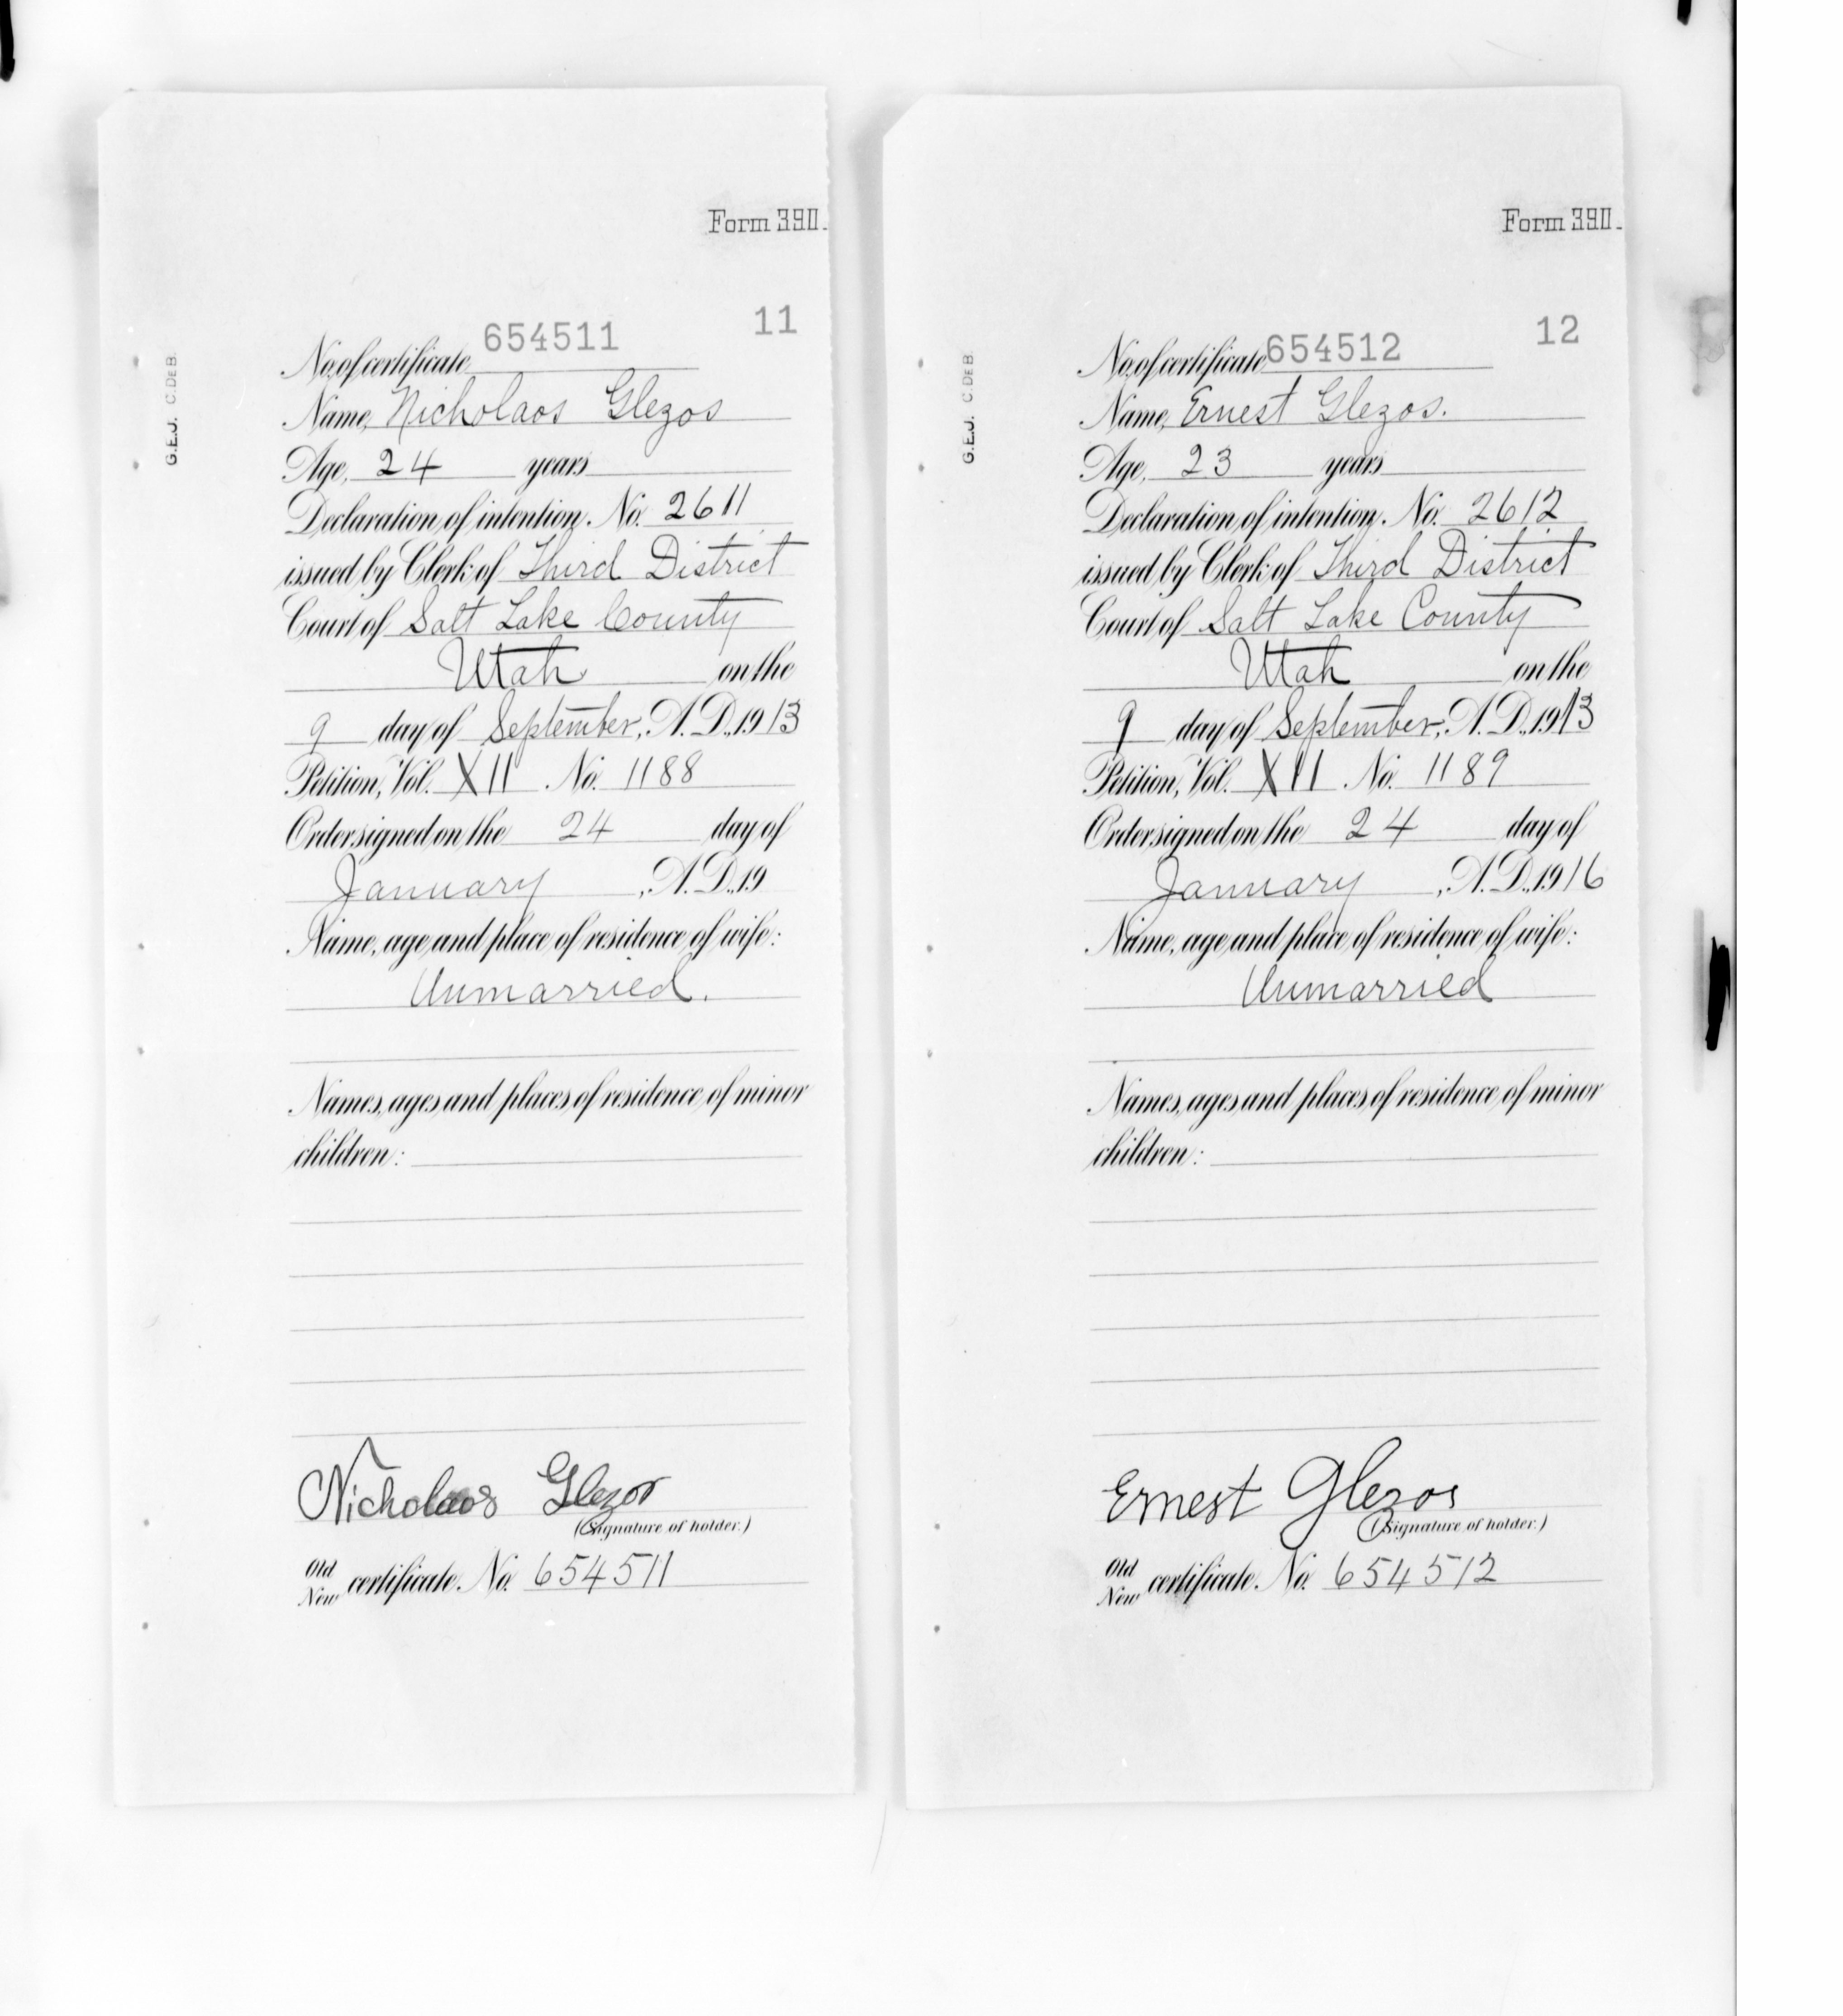 Form 390.
654511
11
No. of certificate
G.E.J. C. DE B.
Name, Nicholaos Glezos
Age, 24 years
Declaration of intention. No. 2611
issued by Clerk of Third District
Court of Salt Lake County
Utah on the
9 day of September, A. D., 1913
Petition, Vol. XII. No. 1188
Order signed on the 24 day of
January, A. D., 19
Name, age and place of residence of wife:
Unmarried.
Names, ages and places of residence of minor
children:
Nicholaos Glezos
(Signature of holder.)
Old
New certificate. No. 654511
Form 390.
12
No. of certificate 654512
G.E.J. C. DE B.
Name, Ernest Glezos.
Age, 23 years
Declaration of intention. No. 2612
issued by Clerk of Third District
Court of Salt Lake County
Utah on the
9 day of September, A. D., 1913
Petition, Vol. XII. No. 1189
Order signed on the 24 day of
January, A. D., 1916
Name, age and place of residence of wife:
Unmarried
Names, ages and places of residence of minor
children:
Ernest Glezos
(Signature of holder.)
Old
New certificate. No. 654512